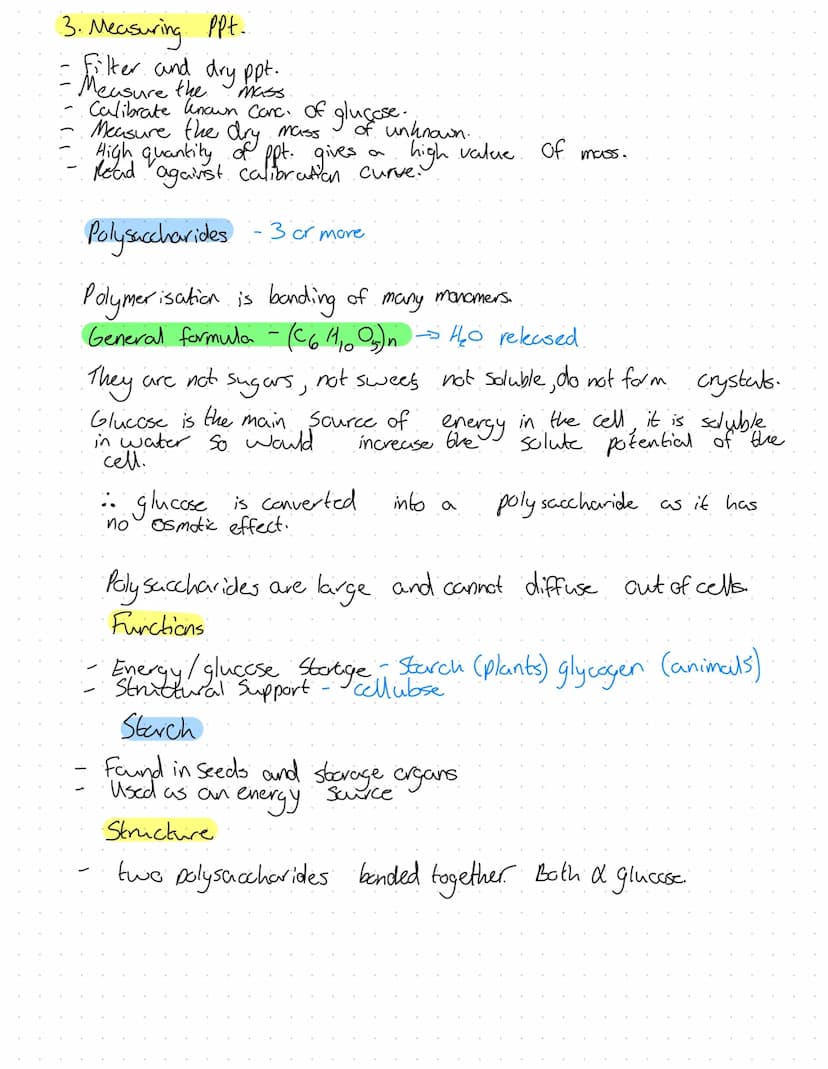 3. Measuring PPt.
- Filter and dry ppt.
- Measure the mass
- Calibrate known conc. of glucose.
- Measure the dry mass of unknown.
- High quantity of ppt. gives a high value of mass.
- Read against calibration curve.
Polysaccharides - 3 or more
Polymerisation is bonding of many monomers.
General formula - (C6 H10 O5)n → H2O released
They are not sugars, not sweet, not soluble, do not form crystals.
Glucose is the main source of energy in the cell, it is soluble
in water so would increase the solute potential of the
cell.
∴ glucose is converted into a polysaccharide as it has
no osmotic effect.
Polysaccharides are large and cannot diffuse out of cells.
Functions
- Energy/glucose Storage - Starch (plants) glycogen (animals)
- Structural Support - cellulose
Starch
- Found in seeds and storage organs
- Used as an energy source
Structure
- two polysaccharides bonded together. Both α glucose.